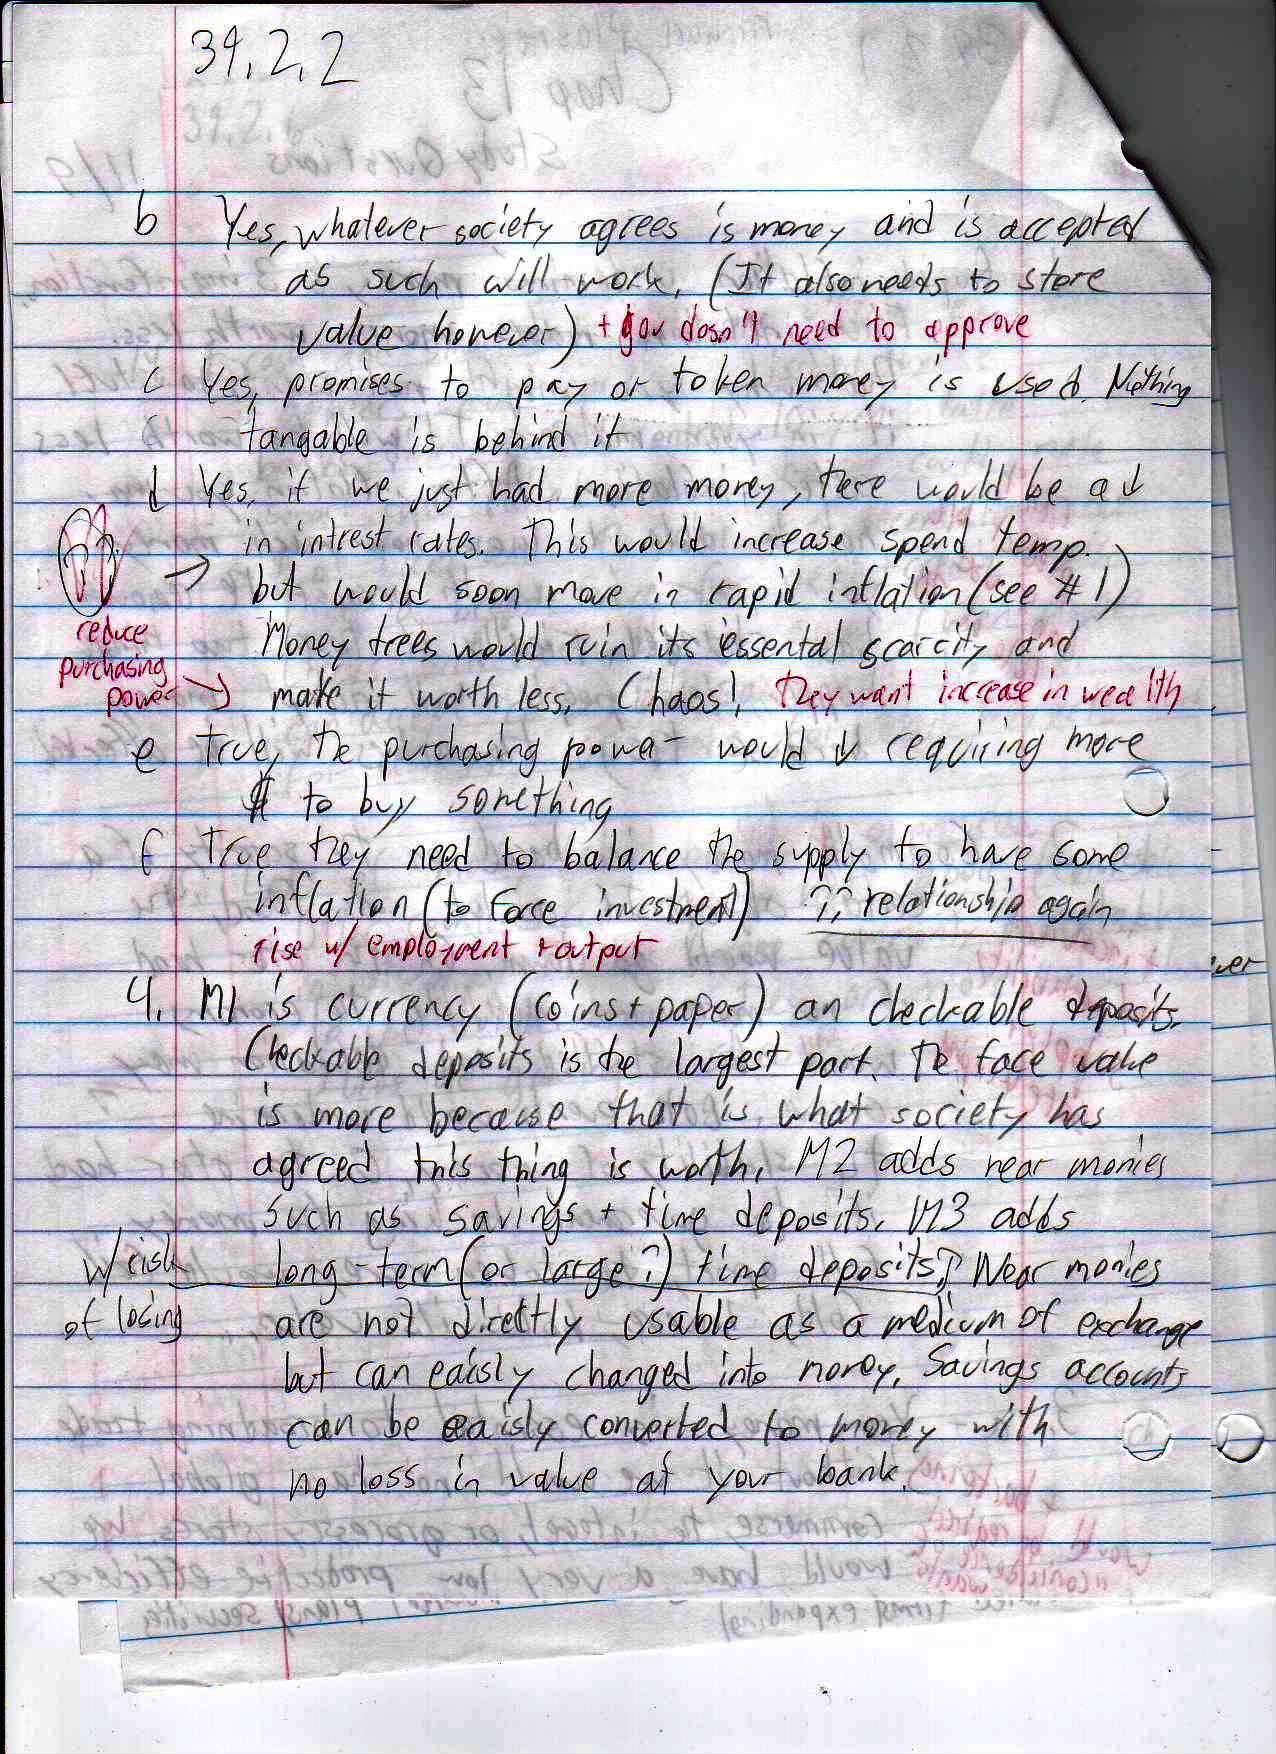 39.2.2
b Yes, whatever society agrees is money and is accepted
as such will work. (It also needs to store
value however) + gov dosn't need to approve
c Yes, promises to pay or token money is used. Nothing
tangable is behind it
d Yes, if we just had more money, there would be a ↓
in intrest rates. This would increase spend temp.
→ but would soon move in rapid inflation (see #1)
reduce
purchasing
power →
Money trees would ruin its essental scarcity and
make it worth less. Chaos! They want increase in wealth
e true, the purchasing power would ↓ requiring more
$ to buy something
f True they need to balance the supply to have some
inflation (to force investment) ?? relationship again
rise w/ employment + output
4. M1 is currency (coins + paper) an checkable deposits.
Checkable deposits is the largest part. The face value
is more because that is what society has
agreed this thing is worth. M2 adds near monies
such as savings + time deposits. M3 adds
w/ risk
of losing
long-term (or large?) time deposits? Near monies
are not directly usable as a medium of exchange
but can eaisly changed into money. Savings accounts
can be eaisly converted to money with
no loss in value at your bank.